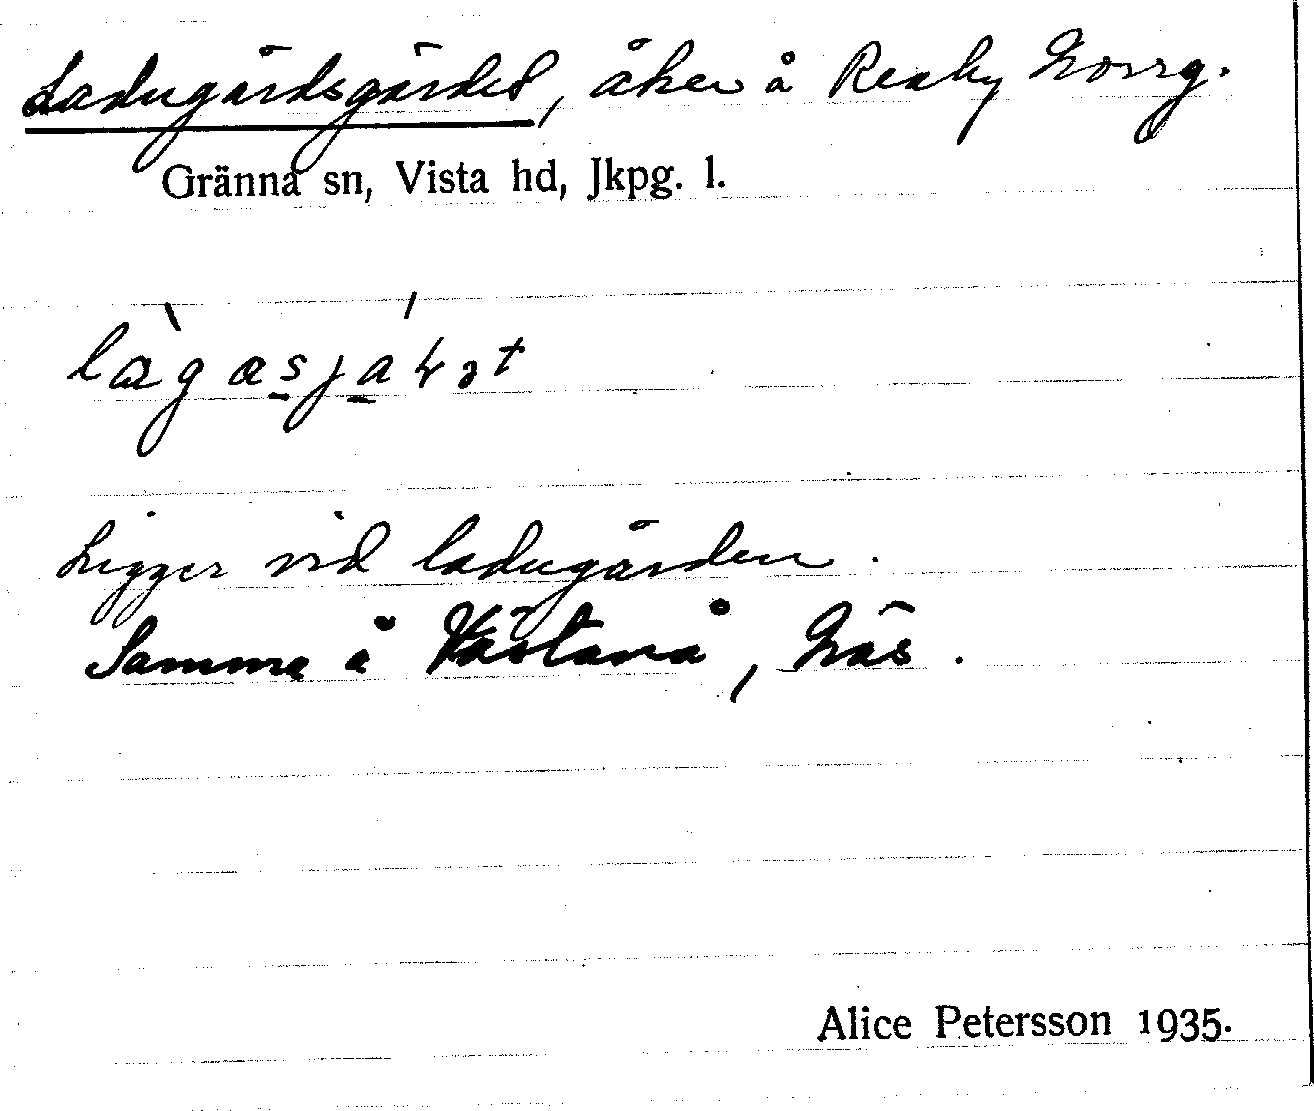 Ladugårdsgärdet, åker å Reaby Norrg.
Gränna sn, Vista hd, Jkpg. l.
Ligger vid ladugården.
Samma å Västanå, Näs.
Alice Petersson 1935.